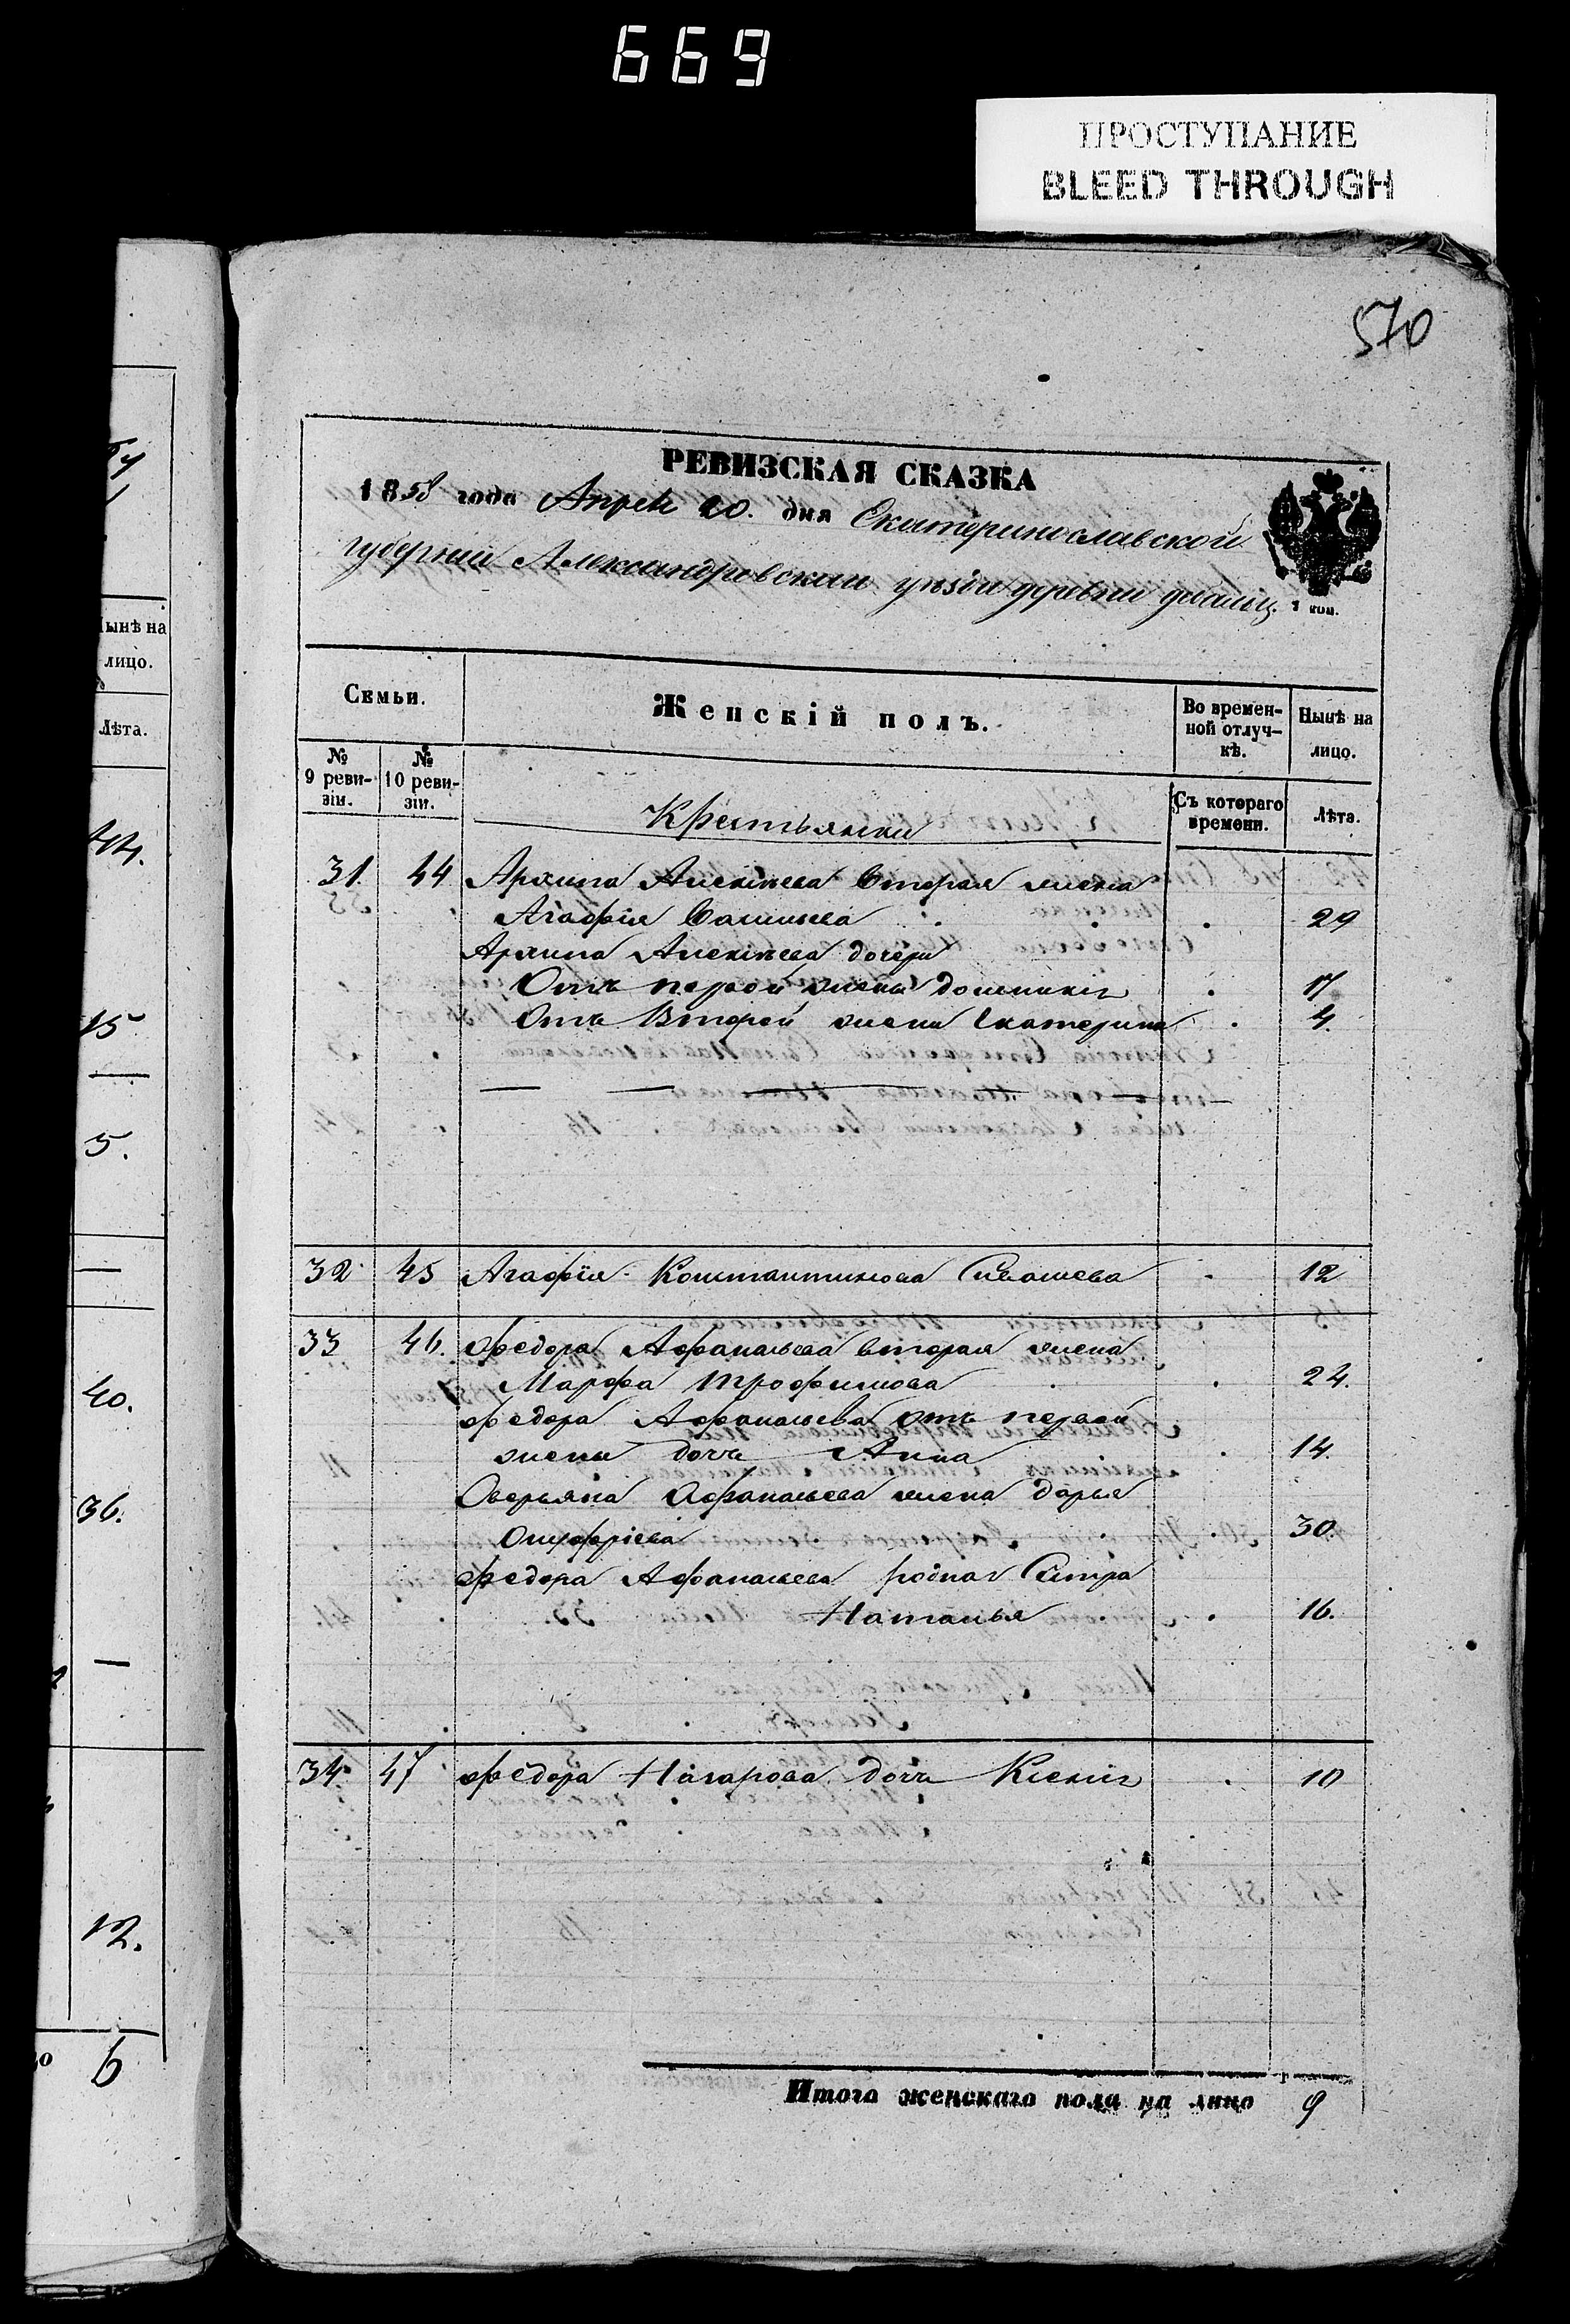 669
ПРОСТУПАНИЕ
BLEED THROUGH
570
РЕВИЗСКАЯ СКАЗКА
1858 года Апреля 20. дня Екатеринославской
губернии Александровскаго уѣзда деревни
1 коп.
Семьи.
Женскій полъ.
Во временной отлучкѣ.
Нынѣ на лицо.
№ 9 ревизіи.
№ 10 ревизіи.
Съ котораго времени.
Лѣта.
Крестьянки
31. 44 Архипа Алексѣева вторая жена
Агафія Савельева 29
Архипа Алексѣева дочери
Отъ первой жены Домникія 17
Отъ Второй жены Екатерина 4.
32 45 Агафія Константинова Сивашева 12
33 46. Федора Афанасьева вторая жена
Марфа Трофимова 24.
Федора Афанасьева отъ первой
жены дочь Анна 14.
Оверьяна Афанасьева жена Дарья
Онуфріева 30.
Федора Афанасьева родная Сестра
Наталья 16.
34 47 Федора Назарова дочь Ксенія 10
Итого женскаго пола на лицо 9
Нынѣ на
лицо.
Лѣта.
44.
15
5.
40.
36.
12.
6